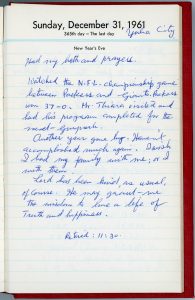 Sunday, December 31, 1961
365th day — The last day
Yuba City
New Year's Eve
Had my bath and prayers.
Watched the N.F.L. Championship game
between Packers and Giants. Packers
won 37-0. Mr. Thiara visited and
had his program completed for the
Another year gone by. Haven't
accomplished much again. Darsh
I had my family with me; or I
with them.
Lord has been kind, as usual,
of course. He may grant me
the wisdom to live a life of
Truth and happiness.
Retired: 11:30.